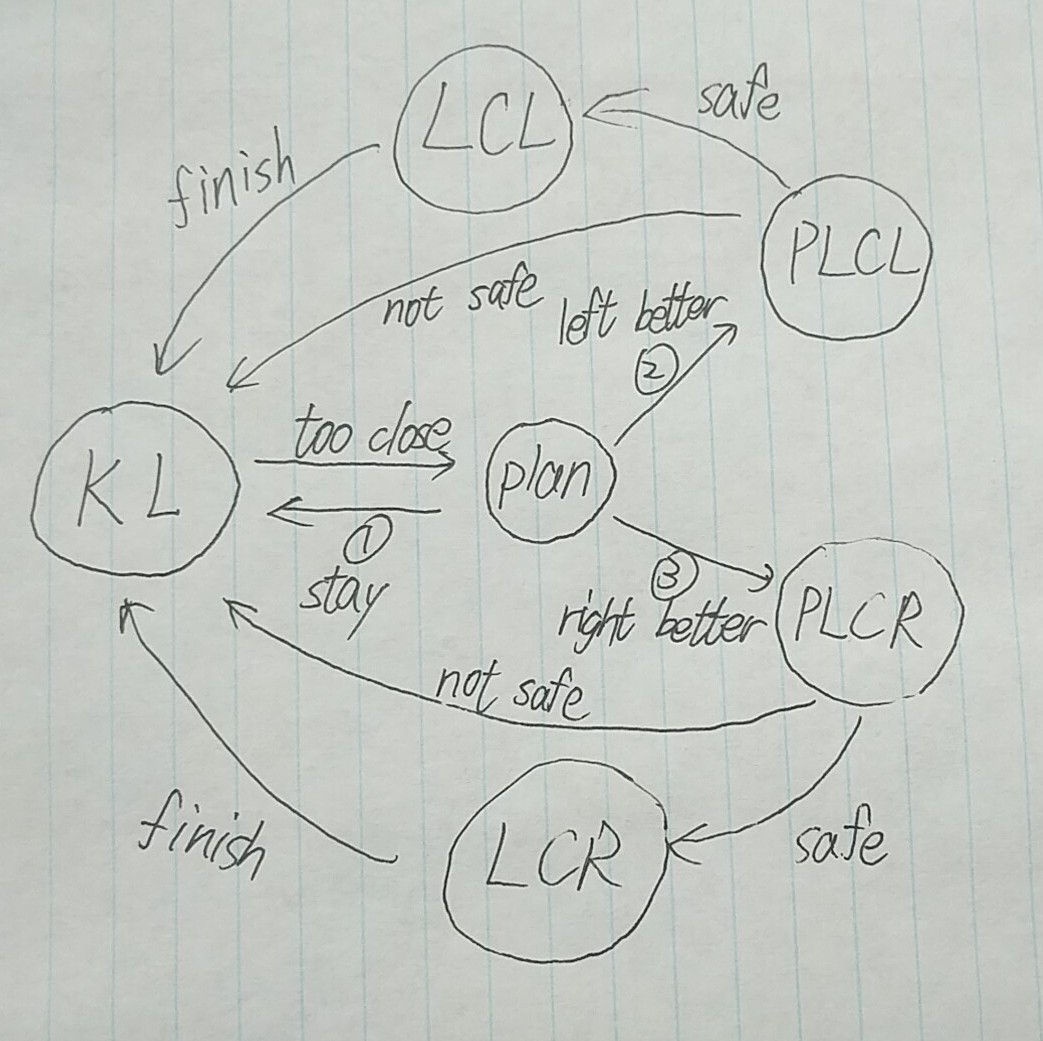 LCL
safe
finish
PLCL
not safe
left better
②
too close
KL
plan
①
stay
③
right better
PLCR
not safe
finish
LCR
safe